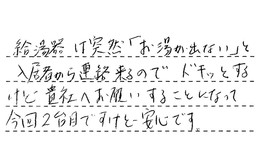 給湯器は突然「お湯が出ない」と
入居者から連絡来るので ドキッとする
けど 貴社へお願いすることになって
今回2台目ですけど安心です。